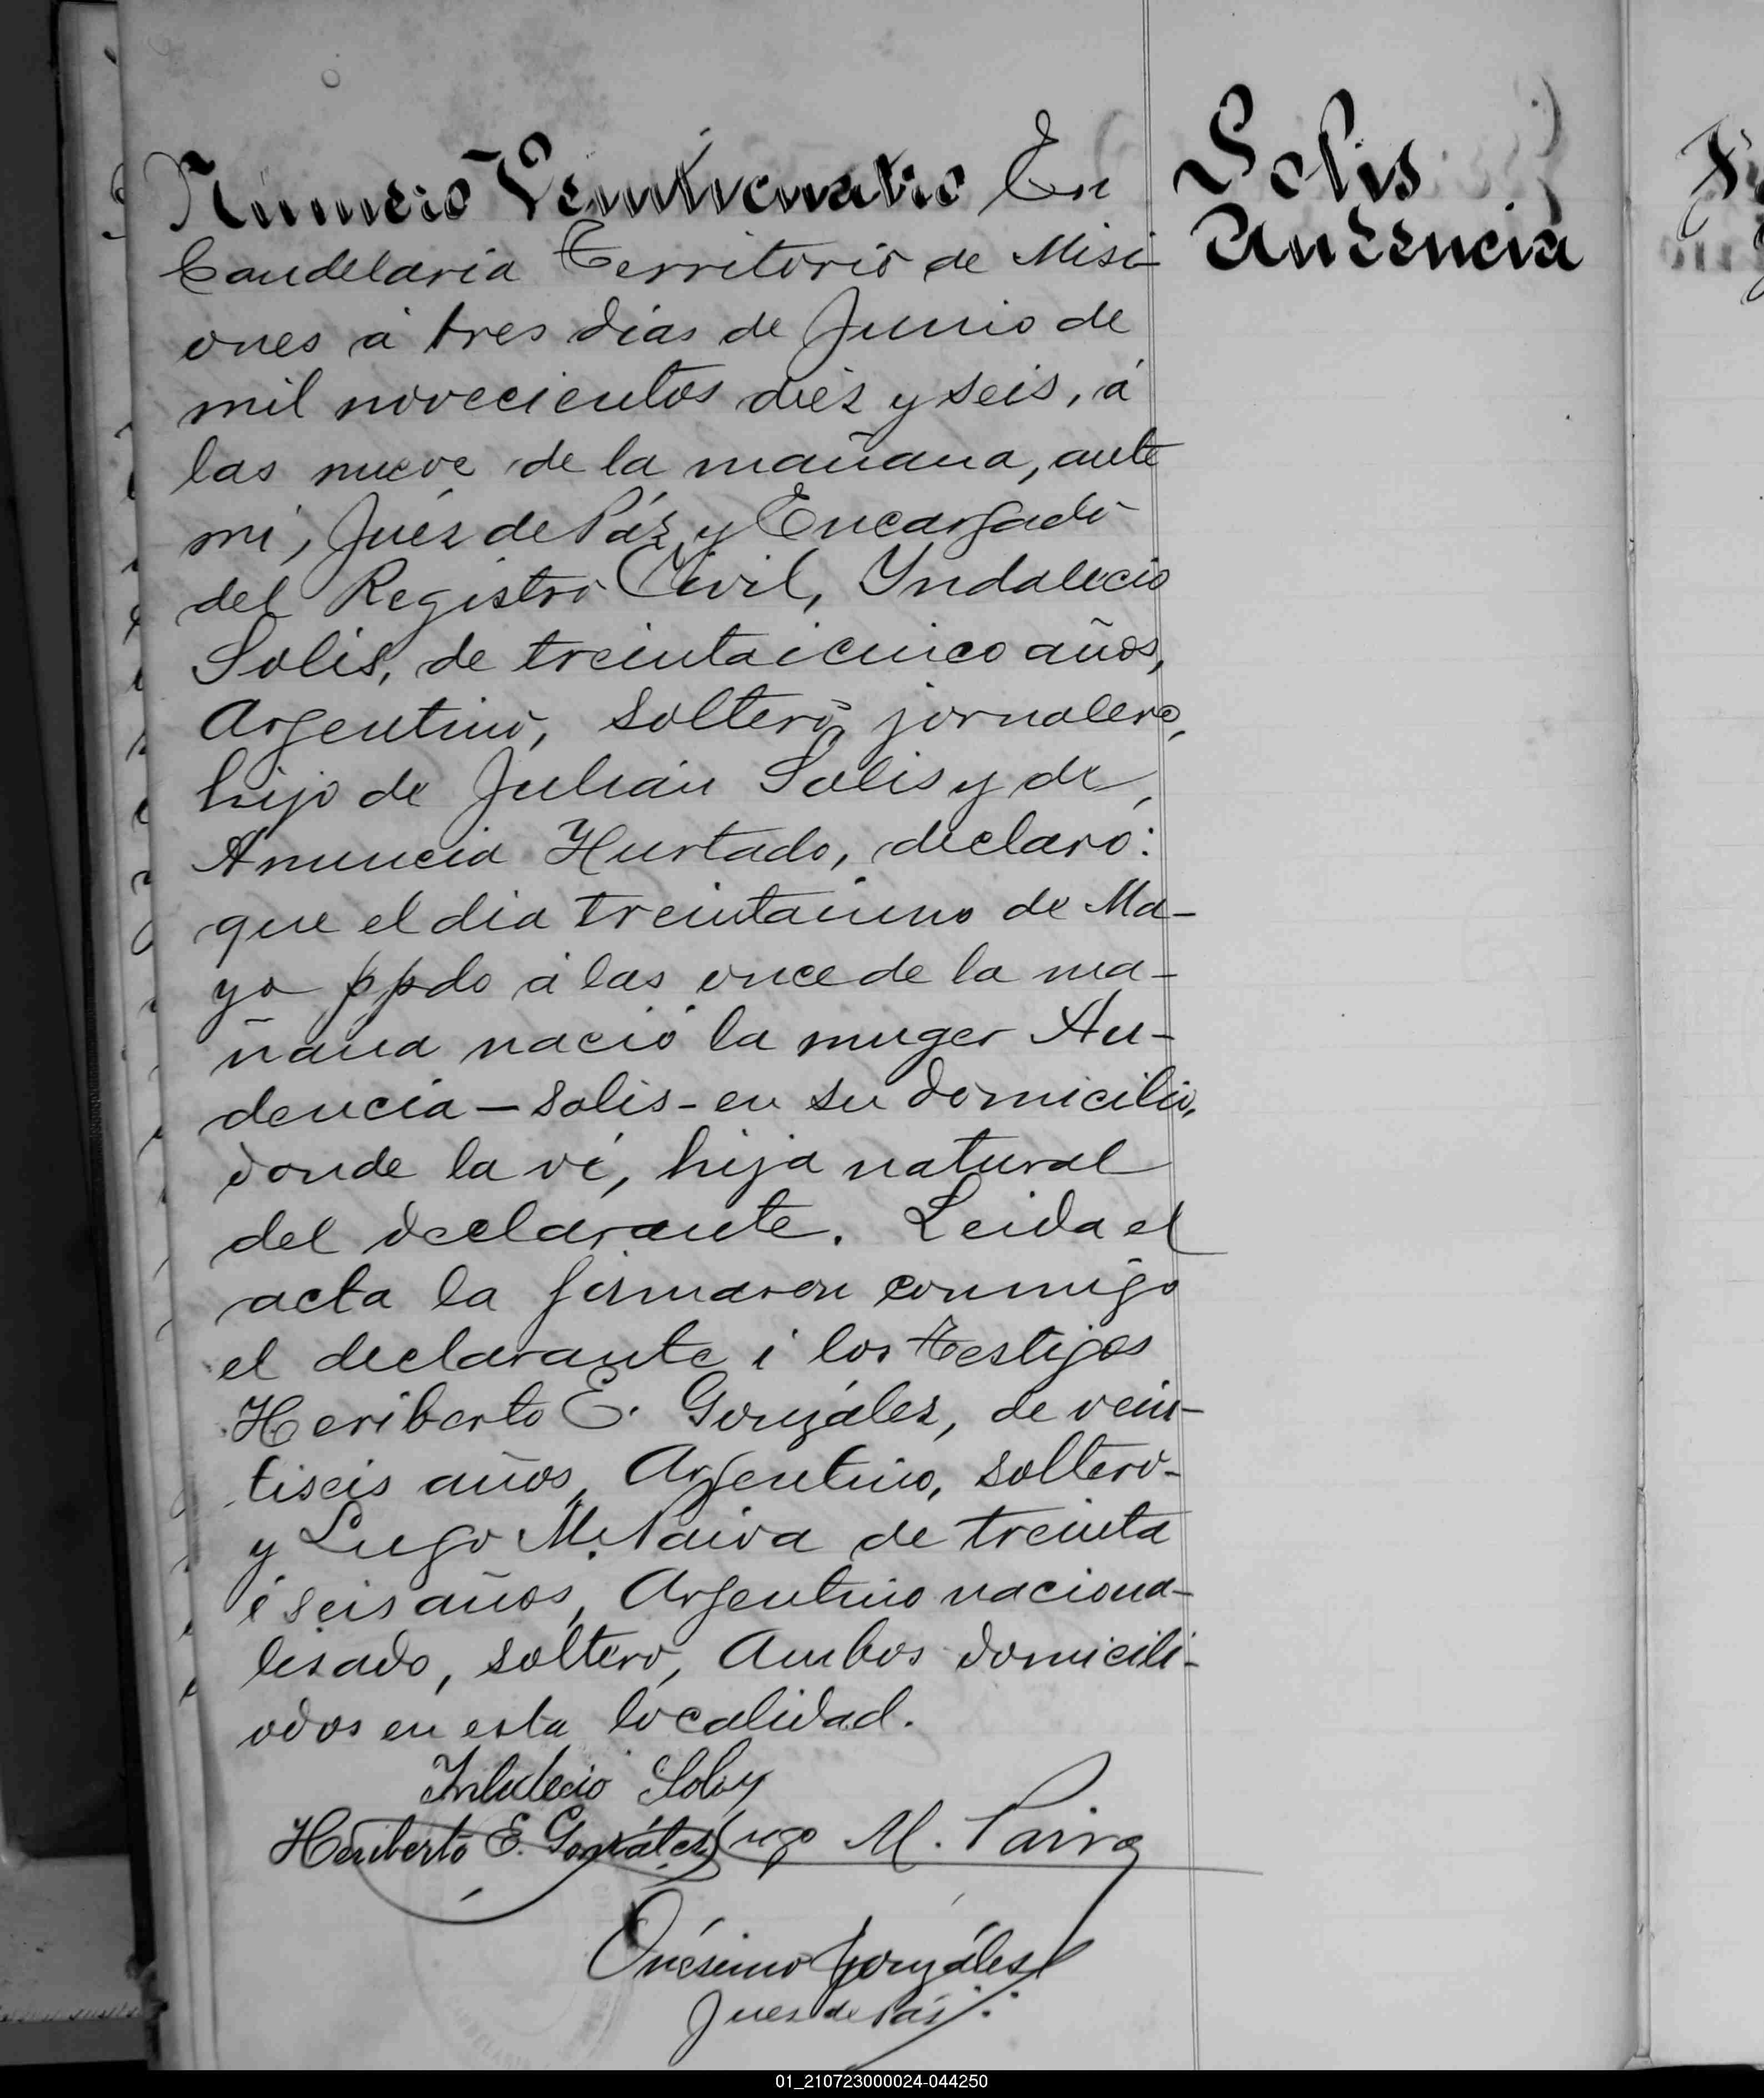 Número Veinticuatro En
Candelaria Territorio de Misi-
ones á tres días de Junio de
mil novecientos diéz y seis, á
las nueve de la mañana, ante
mi, Juéz de Páz y Encargado
del Registro Civil, Yndalecio
Solis, de treintaicinco años,
Argentino, soltero, jornalero,
hijo de Julián Solis y de,
Anuncia Hurtado, declaró:
que el dia treintaiuno de Ma-
yo ppdo á las once de la ma-
ñana nació la muger Au-
dencia - Solis - en su domicilio,
donde la ví, hija natural
del declarante. Leida el
acta la firmaron conmigo
el declarante i los testigos
Heriberto E. González, de vein-
tiseis años, Argentino, soltero-
y Lugo M. Paiva de treinta
i seis años, Argentino naciona-
lisado, soltero, Ambos domicili-
ados en esta localidad.
Indalecio Soliz
Heriberto E. González Lugo M. Paiva
Onésimo Gonzáles
Juez de Paz
Solis
Audencia
01_210723000024-044250